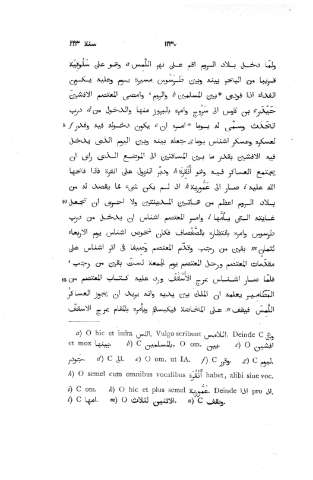 سنة ٢٢٣ ١٢٣٧
ولمّا دخل بلاد الروم اقام على نهر اللُّمس وهو على سَلُوقِيَة
قريبا من البحر بينه وبين طَرَسُوس مسيرة يوم وعليه يكون
الفداء اذا فودى بين المسلمين والروم وامضى المعتصم الافشين
حَيْدَر بن كاوس الى سَرُوج وامره بالبروز منها والدخول من درب
الحَدَث وسمّى له يوما امره ان يكون دخوله فيه وقدّر
لعسكره وعسكر اشناس يوما جعله بينه وبين اليوم الذى يدخل
فيه الافشين بقدر ما بين المسافتين الى الموضع الذى راى ان
يجتمع العساكر فيه وهو أَنْقِرَة ودبّر النزول على انقرة فاذا فتحها
الله عليه صار الى عَمُّورِيَة اذ لم يكن شىء مما يقصد له من
بلاد الروم اعظم من هاتين المدينتين ولا احرى ان تجعل
غايته التى يؤمّها وامر المعتصم اشناس ان يدخل من درب
طرسوس وامره بانتظاره بالصَّفْصاف فكان شخوص اشناس يوم الاربعاء
لثمان بقين من رجب وقدّم المعتصم وصيفا فى اثر اشناس على
مقدّمات المعتصم ورحل المعتصم يوم الجمعة لستّ بقين من رجب
فلمّا صار اشناس بمرج الأُسْقُف ورد عليه كتاب المعتصم من
المطامير يعلمه ان الملك بين يديه وانه يريد ان يجوز العساكر
اللُّمس فيقف على المخاضة فيكبسهم ويأمره بالمقام بمرج الاسقف
a) O hic et infra اللس. Vulgo scribunt اللامس. Deinde C
et mox بينها. b) C والمسلمين. c) O om. d) C
e) O om. ut IA. f) C
h) O semel cum omnibus vocalibus أَنْقِرَة habet, alibi sine voc.
i) C om. k) O hic et plus semel عَمُّورية. Deinde الى pro اذ.
l) C امها. m) O الاثنين لثلاث. n) C ويقف.